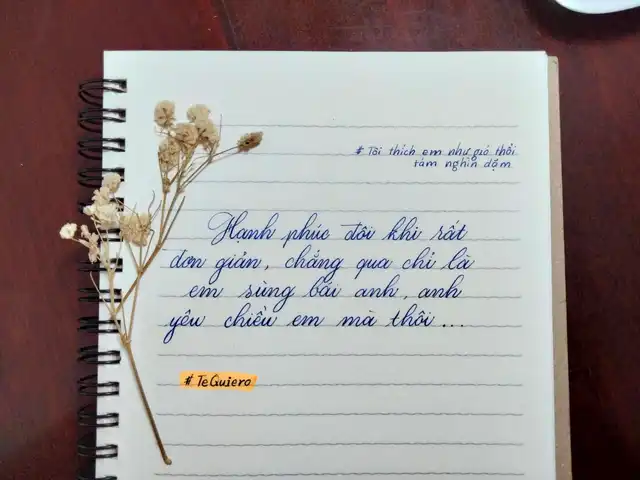 # Tôi thích em như gió thổi
tám nghìn dặm
Hạnh phúc đôi khi rất
đơn giản, chẳng qua chỉ là
em sùng bái anh, anh
yêu chiều em mà thôi...
#TeQuiero